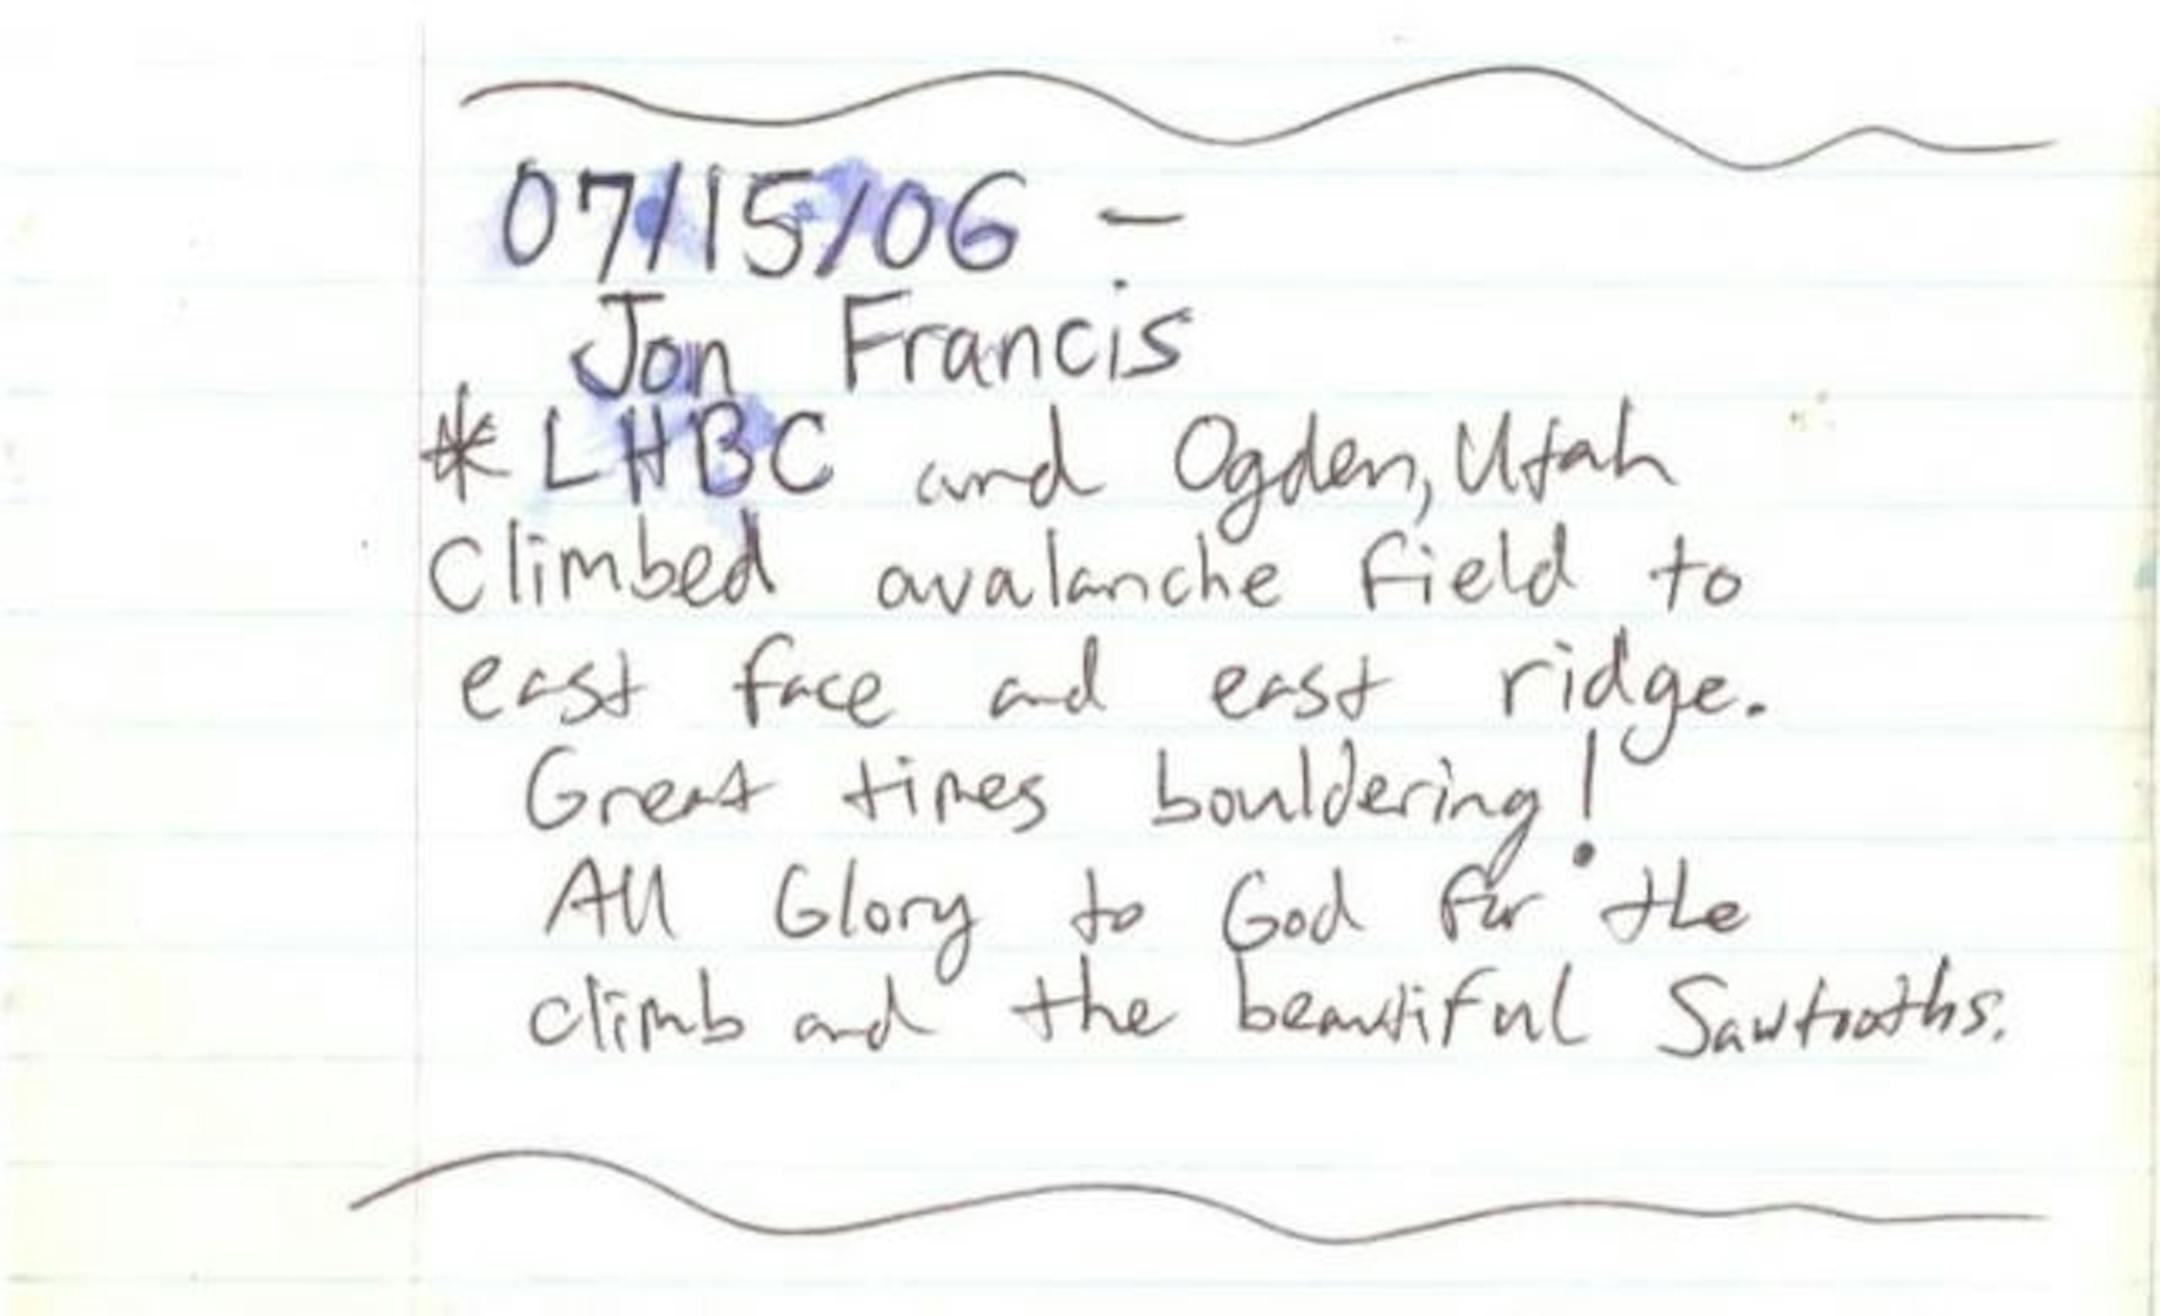 07/15/06 -
Jon Francis
* LHBC and Ogden, Utah
Climbed avalanche field to
east face and east ridge.
Great times bouldering!
All Glory to God for the
climb and the beautiful Sawtooths.